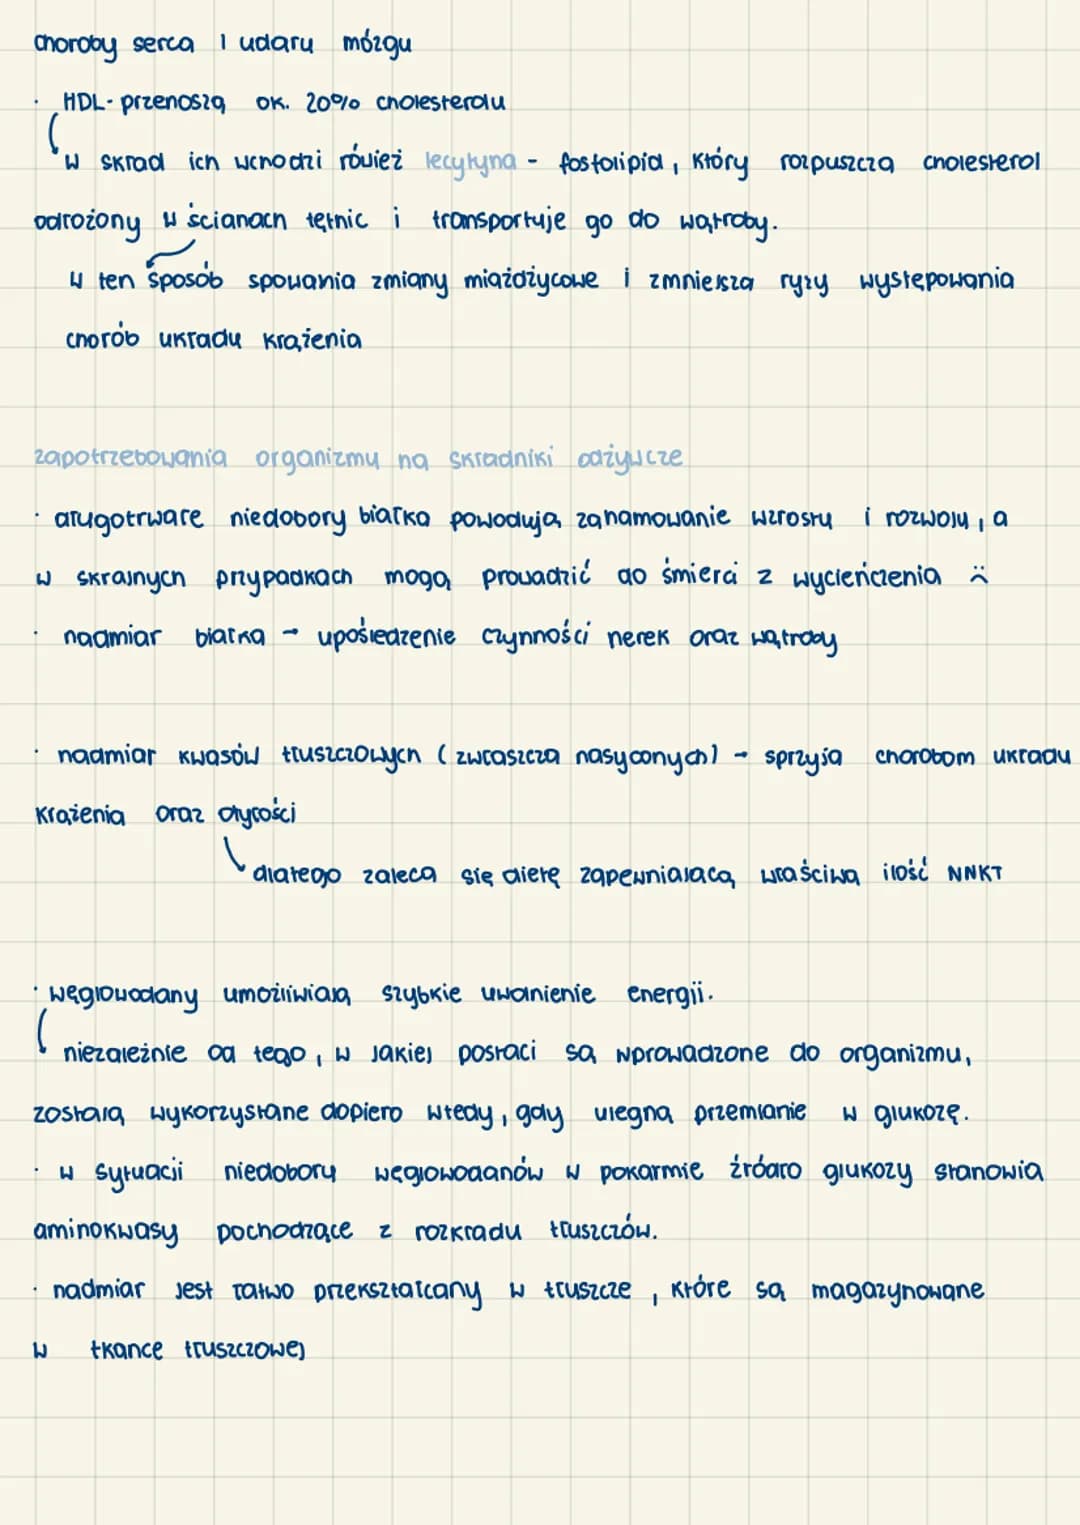 choroby serca i udaru mózgu
· HDL - przenoszą ok. 20% cholesterolu
w skład ich wchodzi rówież lecytyna - fosfolipid, który rozpuszcza cholesterol
odrożony w ścianach tętnic i transportuje go do wątroby.
w ten sposób spowania zmiany miażdżycowe i zmniejsza ryzy występowania
chorób układu krążenia
zapotrzebowania organizmu na składniki odżywcze
· długotrwałe niedobory białka powodują zahamowanie wzrostu i rozwoju, a
w skrajnych przypadkach mogą prowadzić do śmierci z wycieńczenia :(
· nadmiar białka → upośledzenie czynności nerek oraz wątroby
· nadmiar kwasów tłuszczowych (zwłaszcza nasyconych) → sprzyja chorobom układu
krążenia oraz otyłości
dlatego zaleca się dietę zapewniającą właściwą ilość NNKT
· węglowodany umożliwiają szybkie uwolnienie energii.
niezależnie od tego, w jakiej postaci są wprowadzone do organizmu,
zostają wykorzystane dopiero wtedy, gdy ulegną przemianie w glukozę.
· w sytuacji niedobory węglowodanów w pokarmie źródło glukozy stanowią
aminokwasy pochodzące z rozkładu tłuszczów.
· nadmiar jest łatwo przekształcany w tłuszcze, które są magazynowane
w tkance tłuszczowej